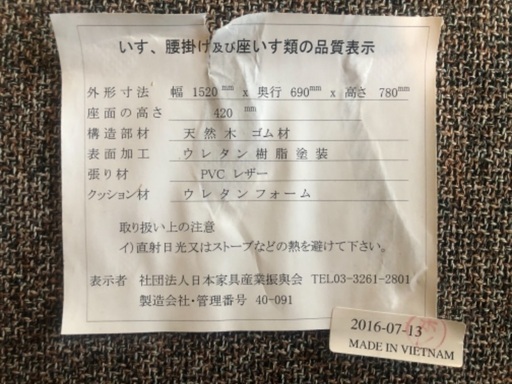 いす、腰掛け及び座いす類の品質表示
外形寸法 幅 1520 mm x 奥行 690mm x 高さ 780mm
座面の高さ 420 mm
構造部材 天然木 ゴム材
表面加工 ウレタン樹脂塗装
張り材 PVC レザー
クッション材 ウレタンフォーム
取り扱い上の注意
イ)直射日光又はストーブなどの熱を避けて下さい。
表示者 社団法人日本家具産業振興会 TEL03-3261-2801
製造会社・管理番号 40-091
2016-07-13
MADE IN VIETNAM